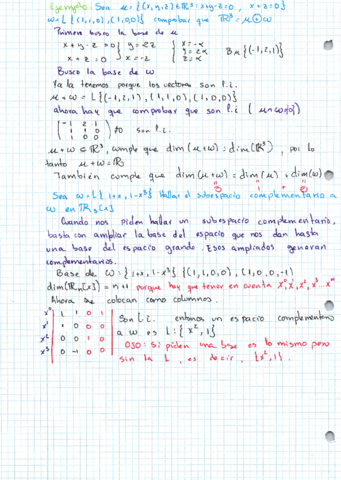 Ejemplo: Sea u = {(x,y,z) ∈ ℝ³: x+y-z=0, x+z=0}
w = L{(1,1,0), (1,0,0)} comprobar que ℝ³ = u ⊕ w
Primero busco la base de u
x+y-z=0 } y=2z { x=-α
x+z=0 } x=-z { y=2α B u {(-1,2,1)}
z=α
Busco la base de w
Ya la tenemos porque los vectores son l.i.
u+w = L{(-1,2,1), (1,1,0), (1,0,0)}
ahora hay que comprobar que son l.i (u∩w={0})
(-1 2 1
1 1 0
1 0 0) ≠0 son l.i.
u+w ⊆ ℝ³, cumple que dim(u+w) = dim(ℝ³), por lo
tanto u+w = ℝ³
También cumple que dim(u+w) = dim(u) + dim(w)
3 1 + 2
Sea w=L{1+x, 1-x³} Hallar el subespacio complementario a
w en ℝ₃[x]
Cuando nos piden hallar un subespacio complementario,
basta con ampliar la base del espacio que nos dan hasta
una base del espacio grande. Esos ampliados generan
complementarios.
Base de w: {1+x, 1-x³} {(1,1,0,0), (1,0,0,-1)
dim(ℝₙ[x]) = n+1 porque hay que tener en cuenta x⁰, x¹, x², x³... xⁿ
Ahora se colocan como columnas.
x⁰ | 1 1 0 1
x¹ | 1 0 0 0
x² | 0 0 1 0
x³ | 0 -1 0 0
Son l.i. entonces un espacio complementario
a w es L: {x², 1}
OJO: Si piden una base es lo mismo pero
sin la L, es decir, {x², 1}